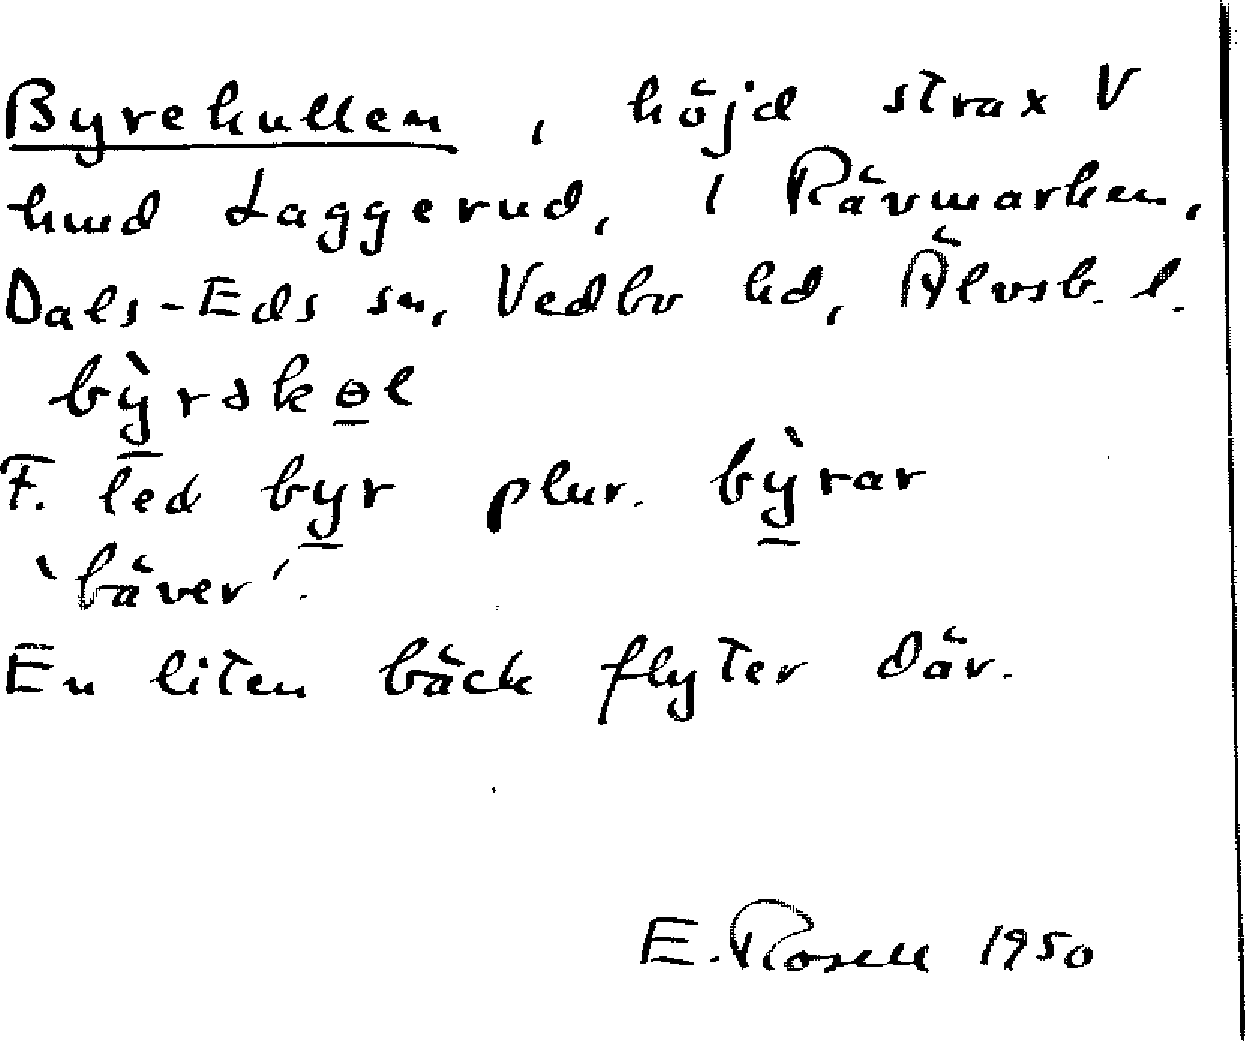 Byrekullen, höjd strax V
hmd Laggerud, i Rävmarken,
Dals-Eds sn, Vedbo hd, Älvsb. l.
bỳ̱rəkɵ̱l
F. led by̱r plur. bỳ̱rar
'bäver'.
En liten bäck flyter där.
E. Rosell 1950